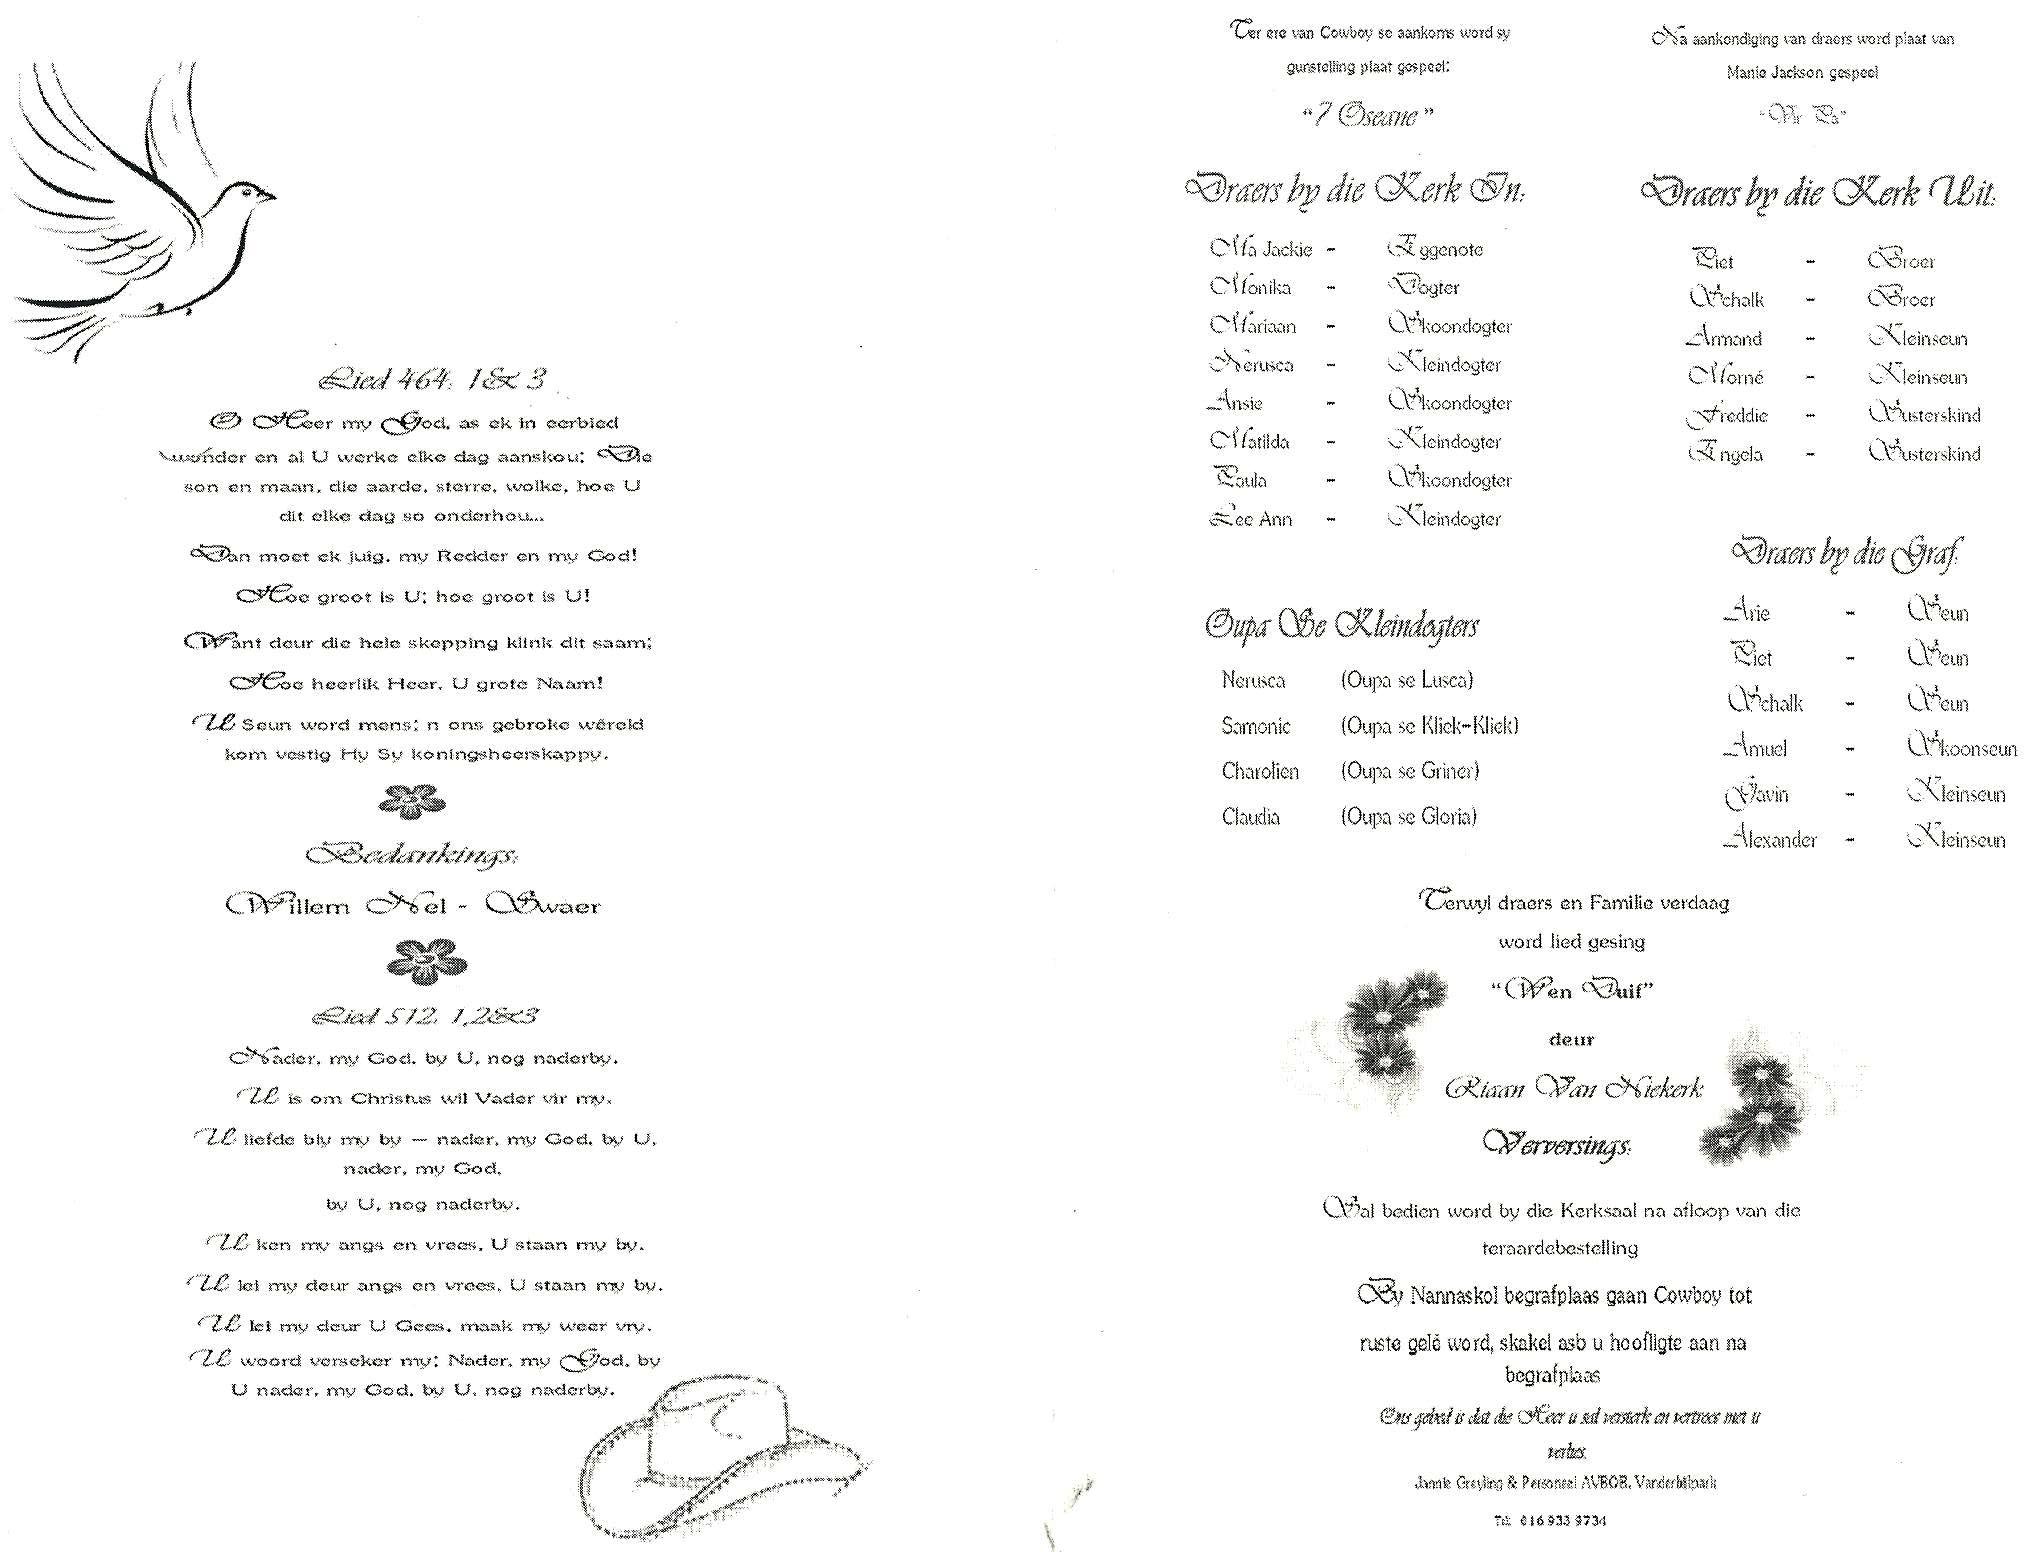 Lied 464: 1& 3
O Heer my God, as ek in eerbied
wonder en al U werke elke dag aanskou; Die
son en maan, die aarde, sterre, wolke, hoe U
dit elke dag so onderhou...
Dan moet ek juig, my Redder en my God!
Hoe groot is U; hoe groot is U!
Want deur die hele skepping klink dit saam;
Hoe heerlik Heer, U grote Naam!
U Seun word mens; n ons gebroke wêreld
kom vestig Hy Sy koningsheerskappy.
Bedankings:
Willem Nel - Swaer
Lied 512: 1,2&3
Nader, my God, by U, nog naderby.
U is om Christus wil Vader vir my.
U liefde bly my by – nader, my God, by U,
nader, my God,
by U, nog naderby.
U ken my angs en vrees, U staan my by.
U lei my deur angs en vrees, U staan my by.
U lei my deur U Gees, maak my weer vry.
U woord verseker my: Nader, my God, by
U nader, my God, by U, nog naderby.
Ter ere van Cowboy se aankoms word sy
gunstelling plaat gespeel:
"7 Oseane"
Draers by die Kerk In:
Ma Jackie - Eggenote
Monika - Dogter
Mariaan - Skoondogter
Nerusca - Kleindogter
Ansie - Skoondogter
Matilda - Kleindogter
Paula - Skoondogter
Lee Ann - Kleindogter
Oupa Se Kleindogters
Nerusca (Oupa se Lusca)
Samonic (Oupa se Kliek-Kliek)
Charolien (Oupa se Griner)
Claudia (Oupa se Gloria)
Na aankondiging van draers word plaat van
Manie Jackson gespeel
"Vir Pa"
Draers by die Kerk Uit:
Piet - Broer
Schalk - Broer
Armand - Kleinseun
Morné - Kleinseun
Freddie - Susterskind
Engela - Susterskind
Draers by die Graf:
Arie - Seun
Piet - Seun
Schalk - Seun
Amuel - Skoonseun
Gavin - Kleinseun
Alexander - Kleinseun
Terwyl draers en Familie verdaag
word lied gesing
"Wen Duif"
deur
Riaan Van Niekerk
Verversings:
Sal bedien word by die Kerksaal na afloop van die
teraardebestelling
By Nannaskol begrafplaas gaan Cowboy tot
ruste gelê word, skakel asb u hoofligte aan na
begrafplaas
Ons gebed is dat die Heer u sal versterk en vertroos met u
verlies.
Jannie Greyling & Personeel AVBOB, Vanderbijlpark
Tel: 016 933 9734